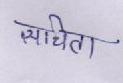 साचेता